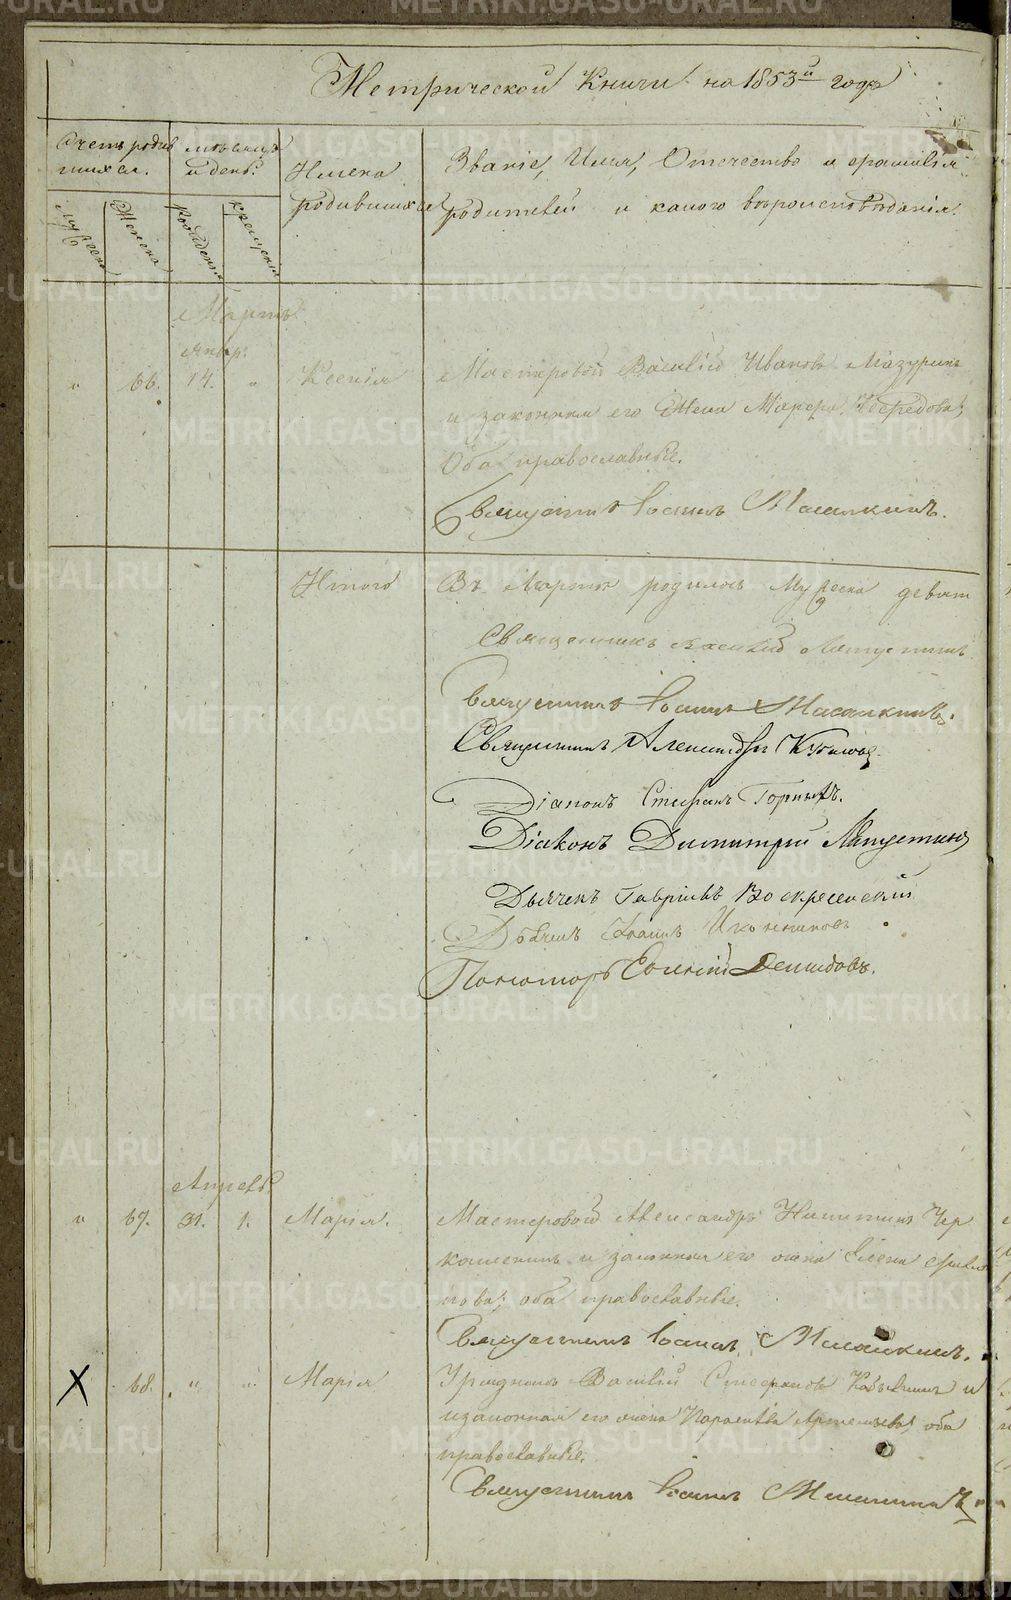 Метрической Книги на 1853й годъ
Счетъ родив
шихся.
мѣсяцъ
и день.
Имена
родившихся
Званіе, Имя, Отечество и фамилія
родителей и какого вѣроисповѣданія.
Мужеска
Женска
рожденія
крещенія
Мартъ.
66. 14. " Ксенія
Мастеровой Василій Ивановъ Мазуринъ
и законная его жена Марфа
Оба православные.
Священникъ Іоаннъ
Итого
Въ Мартѣ родилось Мужеска девят
Священникъ Василій Лапустинъ
Священникъ Іоаннъ
Священникъ Александръ
Діаконъ Стефанъ Горныхъ.
Діаконъ Димитрій Лапустинъ
Дьячекъ Гавріилъ Воскресенскій
Дьячекъ Іоаннъ Иконниковъ
Пономарь Евгеній Демидовъ.
Апрель
67. 31. 1. Марія.
Мастеровой Александръ Никитинъ Чер
и законная его жена Елена
нова; оба православные.
Священникъ Іоаннъ
68. " " Марія
Урядникъ Василій Стефановъ и
законная его жена Параскева Артемьева, оба
православные.
Священникъ Іоаннъ
METRIKI.GASO-URAL.RU